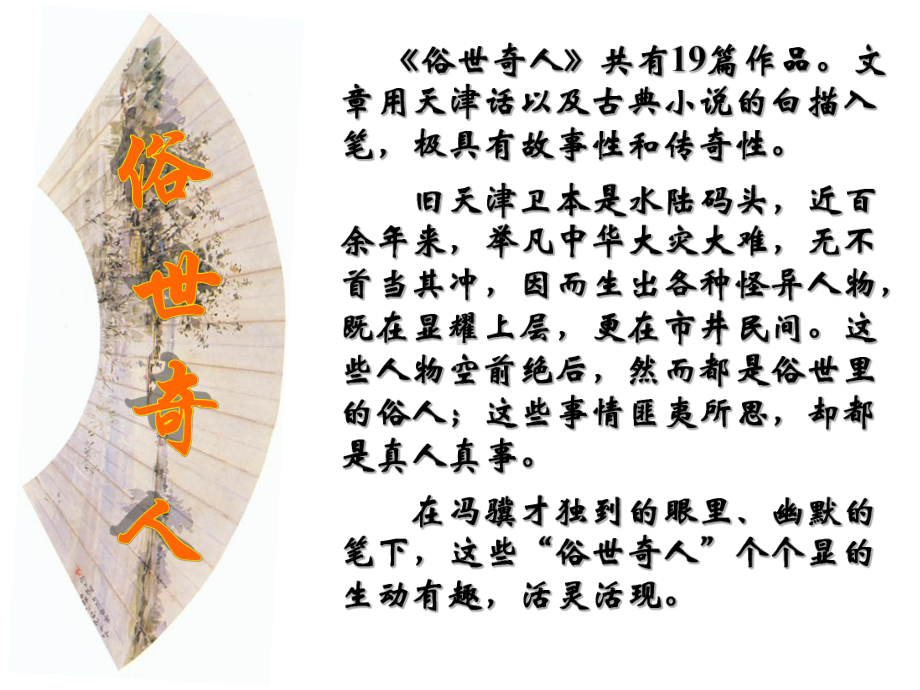 俗
世
奇
人
《俗世奇人》共有19篇作品。文
章用天津话以及古典小说的白描入
笔，极具有故事性和传奇性。
旧天津卫本是水陆码头，近百
余年来，举凡中华大灾大难，无不
首当其冲，因而生出各种怪异人物，
既在显耀上层，更在市井民间。这
些人物空前绝后，然而都是俗世里
的俗人；这些事情匪夷所思，却都
是真人真事。
在冯骥才独到的眼里、幽默的
笔下，这些“俗世奇人”个个显的
生动有趣，活灵活现。